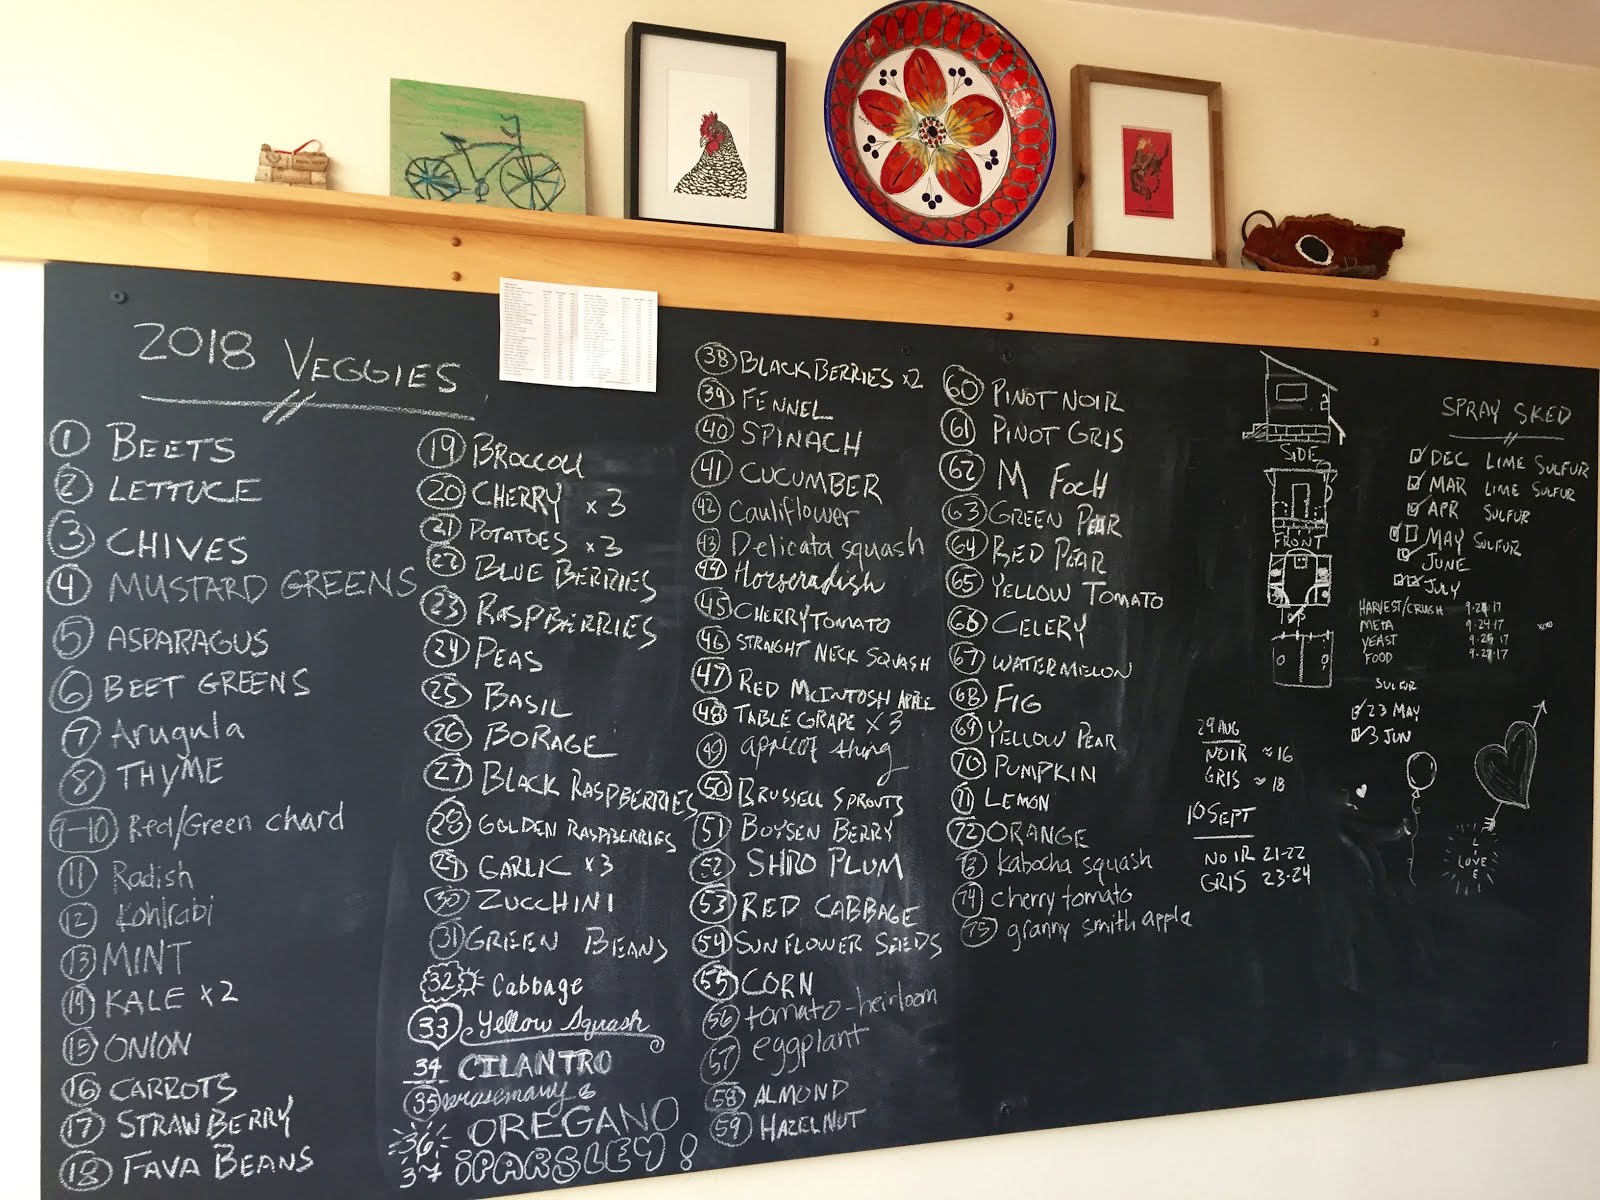 2018 VEGGIES
1 BEETS
2 LETTUCE
3 CHIVES
4 MUSTARD GREENS
5 ASPARAGUS
6 BEET GREENS
7 Arugula
8 THYME
9-10 Red/Green chard
11 Radish
12 Kohlrabi
13 MINT
14 KALE x2
15 ONION
16 CARROTS
17 STRAWBERRY
18 FAVA BEANS
19 BROCCOLI
20 CHERRY x 3
21 POTATOES x 3
22 BLUE BERRIES
23 RASPBERRIES
24 PEAS
25 BASIL
26 BORAGE
27 BLACK RASPBERRIES
28 GOLDEN RASPBERRIES
29 GARLIC x3
30 ZUCCHINI
31 GREEN BEANS
32 Cabbage
33 Yellow Squash
34 CILANTRO
35 rosemary &
36 OREGANO
37 ¡PARSLEY!
38 BLACKBERRIES x2
39 FENNEL
40 SPINACH
41 CUCUMBER
42 Cauliflower
43 Delicata squash
44 Horseradish
45 CHERRY TOMATO
46 STRAIGHT NECK SQUASH
47 RED MCINTOSH APPLE
48 TABLE GRAPE x 3
49 apricot thing
50 BRUSSELL SPROUTS
51 BOYSEN BERRY
52 SHIRO PLUM
53 RED CABBAGE
54 SUNFLOWER SEEDS
55 CORN
56 tomato-heirloom
57 eggplant
58 ALMOND
59 HAZELNUT
60 PINOT NOIR
61 PINOT GRIS
62 M FOCH
63 GREEN PEAR
64 RED PEAR
65 YELLOW TOMATO
66 CELERY
67 WATERMELON
68 FIG
69 YELLOW PEAR
70 PUMPKIN
71 LEMON
72 ORANGE
73 kabocha squash
74 cherry tomato
75 granny smith apple
SIDE
FRONT
29 AUG
NOIR ≈ 16
GRIS ≈ 18
10 SEPT
NOIR 21-22
GRIS 23-24
SPRAY SKED
DEC LIME SULFUR
MAR LIME SULFUR
APR SULFUR
MAY SULFUR
JUNE
JULY
HARVEST/CRUSH
META 9-24-17
YEAST
FOOD
SULFUR
23 MAY
3 JUN
LOVE